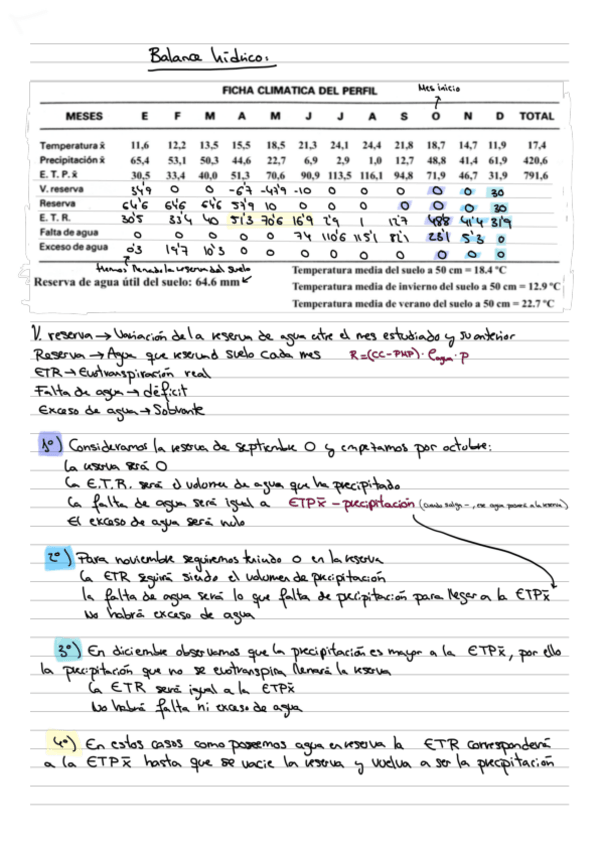 Balance hídrico:
FICHA CLIMATICA DEL PERFIL
Mes inicio
MESES E F M A M J J A S O N D TOTAL
Temperatura x̄ 11,6 12,2 13,5 15,5 18,5 21,3 24,1 24,4 21,8 18,7 14,7 11,9 17,4
Precipitación x̄ 65,4 53,1 50,3 44,6 22,7 6,9 2,9 1,0 12,7 48,8 41,4 61,9 420,6
E. T. P. x̄ 30,5 33,4 40,0 51,3 70,6 90,9 113,5 116,1 94,8 71,9 46,7 31,9 791,6
V. reserva 34'9 0 0 -6'7 -47'9 -10 0 0 0 0 0 30
Reserva 64'6 64'6 64'6 57'9 10 0 0 0 0 0 0 30
E. T. R. 30'5 33'4 40 51'3 70'6 16'9 2'9 1 12'7 48'8 41'4 31'9
Falta de agua 0 0 0 0 0 74 110'6 115'1 82'1 23'1 5'3 0
Exceso de agua 0'3 19'7 10'3 0 0 0 0 0 0 0 0 0
Hemos llenado la reserva del suelo
Reserva de agua útil del suelo: 64.6 mm
Temperatura media del suelo a 50 cm = 18.4 ºC
Temperatura media de invierno del suelo a 50 cm = 12.9 ºC
Temperatura media de verano del suelo a 50 cm = 22.7 ºC
V. reserva → Variación de la reserva de agua entre el mes estudiado y su anterior
Reserva → Agua que reserva el suelo cada mes R=(CC-PMP)·ρagua·p
ETR → Evotranspiración real
Falta de agua → déficit
Exceso de agua → Sobrante
1º) Consideramos la reserva de septiembre 0 y empezamos por octubre:
La reserva será 0
La E.T.R. será el volumen de agua que ha precipitado
La falta de agua será igual a ETPx̄ - precipitación (cuando salga -, ese agua pasará a la reserva)
El exceso de agua será nulo
2º) Para noviembre seguiremos teniendo 0 en la reserva
La ETR seguirá siendo el volumen de precipitación
la falta de agua será lo que falta de precipitación para llegar a la ETPx̄
No habrá exceso de agua
3º) En diciembre observamos que la precipitación es mayor a la ETPx̄, por ello
la precipitación que no se evotranspira llenará la reserva
La ETR será igual a la ETPx̄
No habrá falta ni exceso de agua
4º) En estos casos como poseemos agua en reserva la ETR corresponderá
a la ETPx̄ hasta que se vacie la reserva y vuelva a ser la precipitación